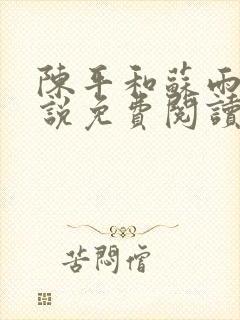 陳平和蘇雨
說免費閱讀
苦悶僧